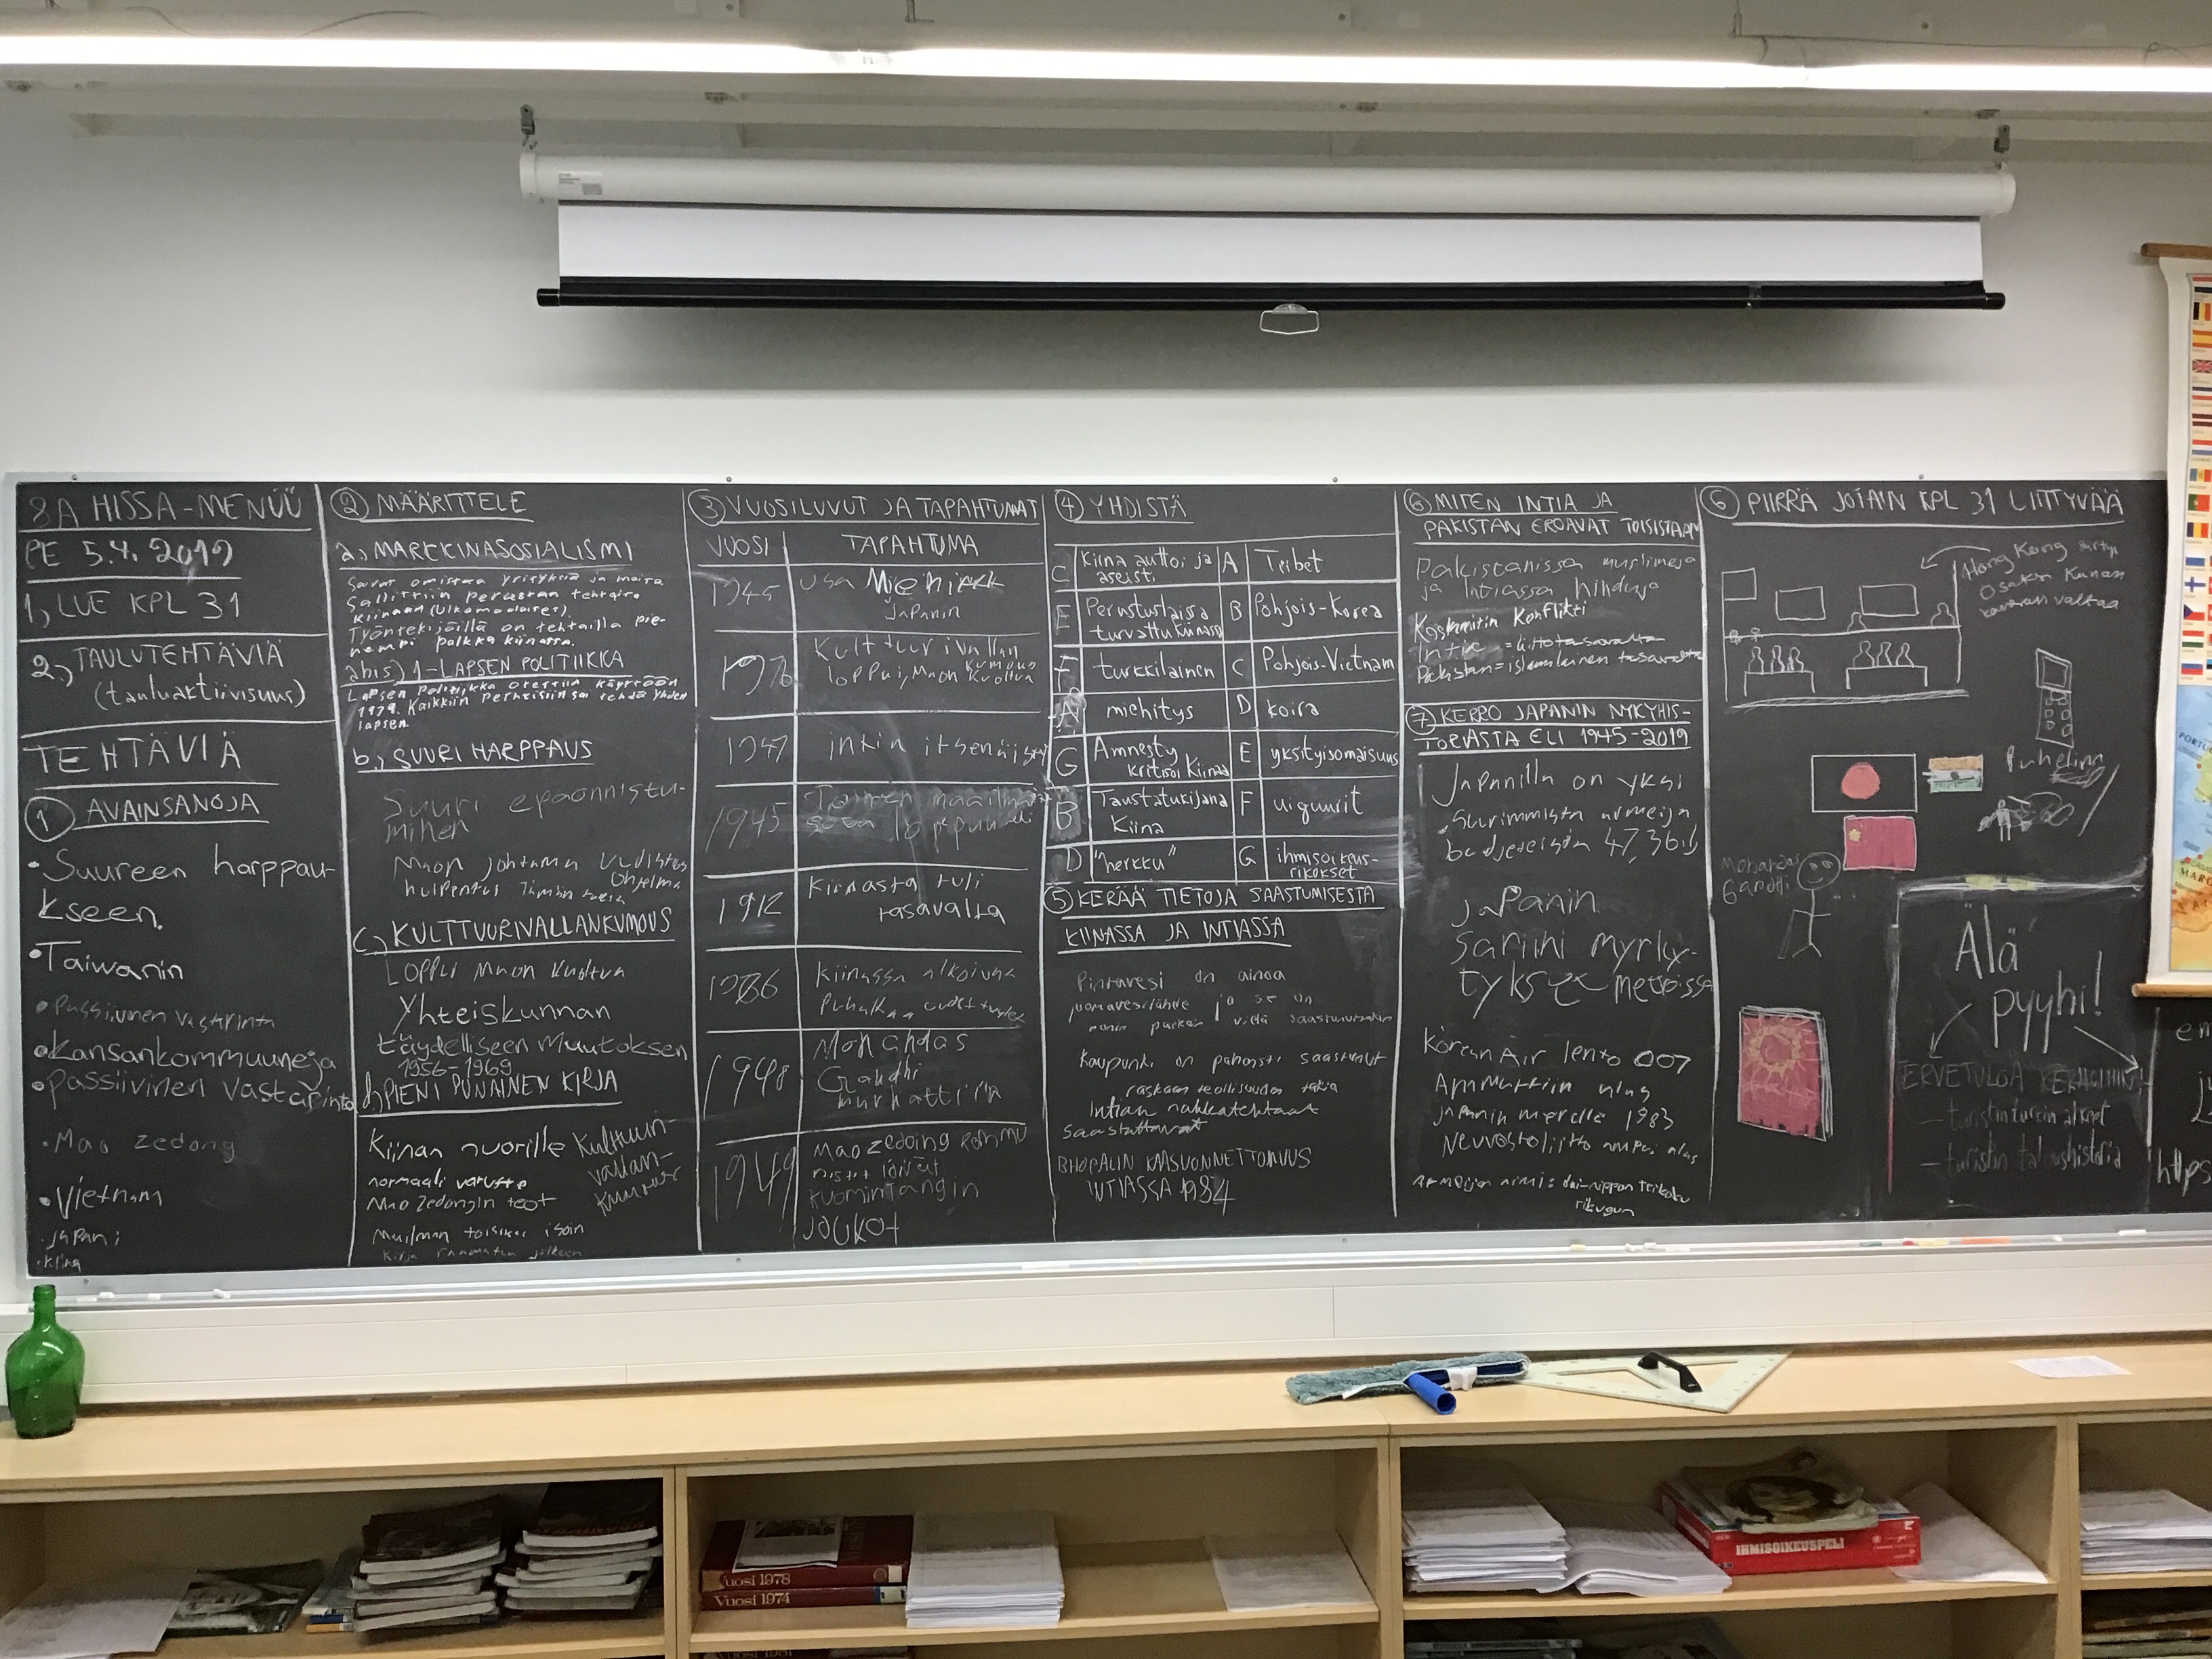 8A HISSA-MENÜÜ
PE 5.4.2019
1, LUE KPL 31
2.) TAULUTEHTÄVIÄ
(tauluaktiivisuus)
TEHTÄVIÄ
① AVAINSANOJA
• Suureen harppau-
kseen.
• Taiwanin
• Passiivinen vastarinta
• Kansankommuuneja
• passiivinen vastarinta
• Mao zedong
• Vietnam
• japani
• kiina
② MÄÄRITTELE
a.) MARKKINASOSIALISMI
Saivat omistaa yrityksiä ja maita
Sallittiin perustaa tehtaita
Kiinaan (Ulkomaalaiset).
Työntekijöillä on tehtailla pie-
nempi palkka kiinassa.
abis) 1-LAPSEN POLITIIKKA
Lapsen politiikka otettiin käyttöön
1979. Kaikkiin perheisiin sai tehdä yhden
lapsen.
b.) SUURI HARPPAUS
Suuri epäonnistu-
minen
Maon johtama Uudistus
ohjelma
huipentui
c.) KULTTUURIVALLANKUMOUS
Loppui Maon Kuoltua
Yhteiskunnan
täydelliseen Muutoksen
1956-1969
d.) PIENI PUNAINEN KIRJA
Kiinan nuorille Kulttuuri-
vallan-
normaali varuste
Mao Zedongin teot
Maailman toiseksi isoin
kirja raamatun jälkeen
③ VUOSILUVUT JA TAPAHTUMAT
VUOSI TAPAHTUMA
1945 USA Miehitti
JAPANIN
1976 Kulttuurivallan
kumous
loppui, Maon Kuoltua
1947 intia itsenäistyi
1945 Toinen maailman
sota loppuu
1912 Kiinasta tuli
tasavalta
kiinassa alkoivat
1948 Mohandas
Gandhi
murhattiin
1949 Mao zedoing kommu
nistit löivät
Kuomintangin
joukot
④ YHDISTÄ
C Kiina auttoi ja
aseisti A Tiibet
E Perustuslaissa
turvattu kiinassa B Pohjois-Korea
F turkkilainen C Pohjois-Vietnam
A miehitys D koira
G Amnesty
kritisoi Kiinaa E yksityisomaisuus
B Taustatukijana
Kiina F uiguurit
D "herkku" G ihmisoikeus-
rikokset
⑤ KERÄÄ TIETOJA SAASTUMISESTA
KIINASSA JA INTIASSA
Pintavesi on ainoa
juomavesilähde ja se on
monin paikoin vielä
Kaupunki on pahasti saastunut
raskaan teollisuuden takia
Intian nahkatehtaat
saastuttavat
BHOPALIN KAASUONNETTOMUUS
INTIASSA 1984
⑥ MITEN INTIA JA
PAKISTAN EROAVAT TOISISTAAN
Pakistanissa muslimeja
ja Intiassa hinduja
Kashmirin Konflikti
Intia = liittotasavalta
Pakistan = islamilainen tasavalta
⑦ KERRO JAPANIN NYKYHIS-
TORIASTA ELI 1945-2019
Japanilla on yksi
suurimmista armeija
budjeteista 47,36
japanin
Sariini myrky-
tykset metroissa
Korean Air lento 007
Ammuttiin alas
japanin merelle 1983
Neuvostoliitto ampui alas
Armeijan nimi: dai-nippon teikoku
rikugun
⑥ PIIRRÄ JOTAIN KPL 31 LIITTYVÄÄ
Hong Kong siirtyi
Osaksi Kiinan
valtaa
Puhelin
Mohandas
Gandhi
Älä
pyyhi!
TERVETULOA
- turistin
- turistin taloushistoria
https
Vuosi 1978
Vuosi 1974
IHMISOIKEUSPELI